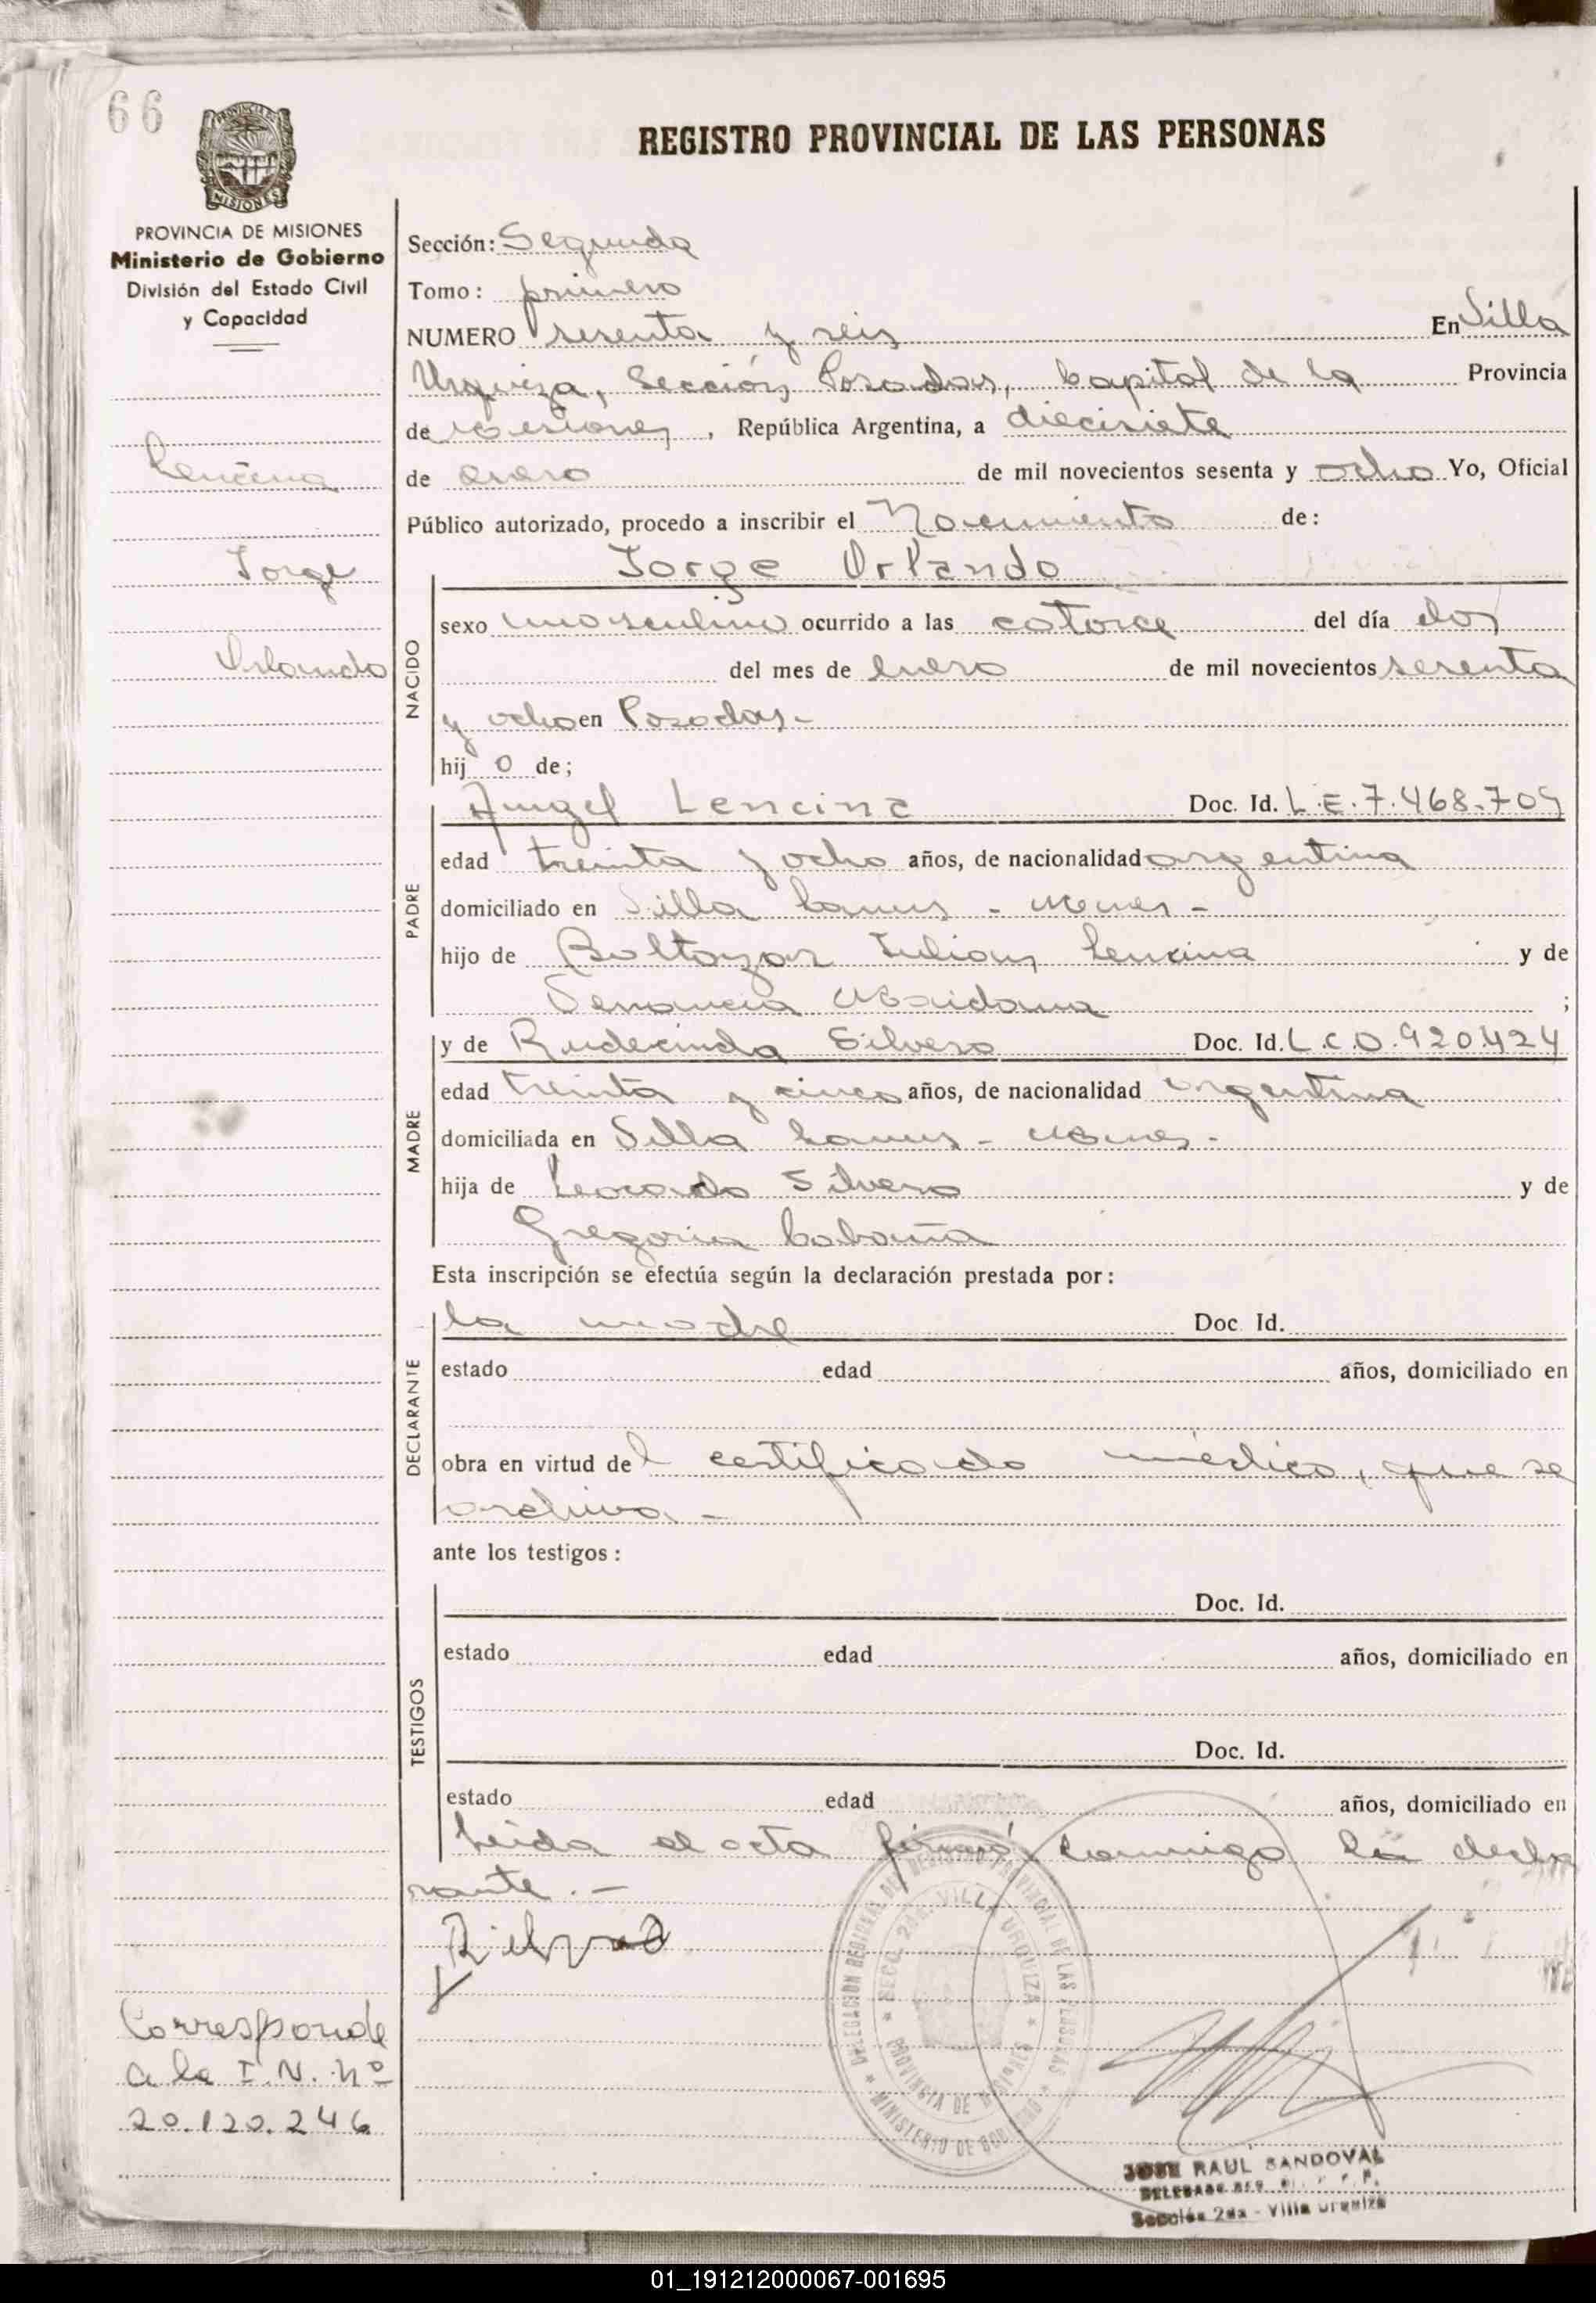 66
PROVINCIA DE MISIONES
Ministerio de Gobierno
División del Estado Civil
y Capacidad
Lencina
Jorge
Orlando
REGISTRO PROVINCIAL DE LAS PERSONAS
Sección: Segunda
Tomo: primero
NUMERO sesenta y seis En Villa
Urquiza, Sección Posadas, Capital de la Provincia
de Misiones, República Argentina, a diecisiete
de enero de mil novecientos sesenta y ocho Yo, Oficial
Público autorizado, procedo a inscribir el Nacimiento de:
Jorge Orlando
NACIDO
sexo masculino ocurrido a las catorce del día dos
del mes de enero de mil novecientos sesenta
y ocho en Posadas.-
hij o de;
PADRE
Angel Lencina Doc. Id. L.E. 7.468.709
edad treinta y ocho años, de nacionalidad argentina
domiciliado en Villa Lanus - Mnes -
hijo de Baltazar Julian Lencina y de
Venancia Maidana ;
MADRE
y de Rudecinda Silvero Doc. Id. L.C.0.920.424
edad treinta y cinco años, de nacionalidad argentina
domiciliada en Villa Lanus - Mnes.-
hija de Leocadio Silvero y de
Gregoria Cabaña
Esta inscripción se efectúa según la declaración prestada por:
DECLARANTE
la madre Doc. Id.
estado edad años, domiciliado en
obra en virtud del certificado médico, que se
archiva.-
ante los testigos:
TESTIGOS
Doc. Id.
estado edad años, domiciliado en
Doc. Id.
estado edad años, domiciliado en
Leida el acta firmó conmigo la decla
rante.-
Corresponde
a la I.N. Nº
20.120.246
DELEGACION REGIONAL DEL REGISTRO PROVINCIAL DE LAS PERSONAS
SECC. 2da. VILLA URQUIZA
PROVINCIA DE MISIONES
MINISTERIO DE GOBIERNO
JOSE RAUL SANDOVAL
Sección 2da - Villa Urquiza
01_191212000067-001695